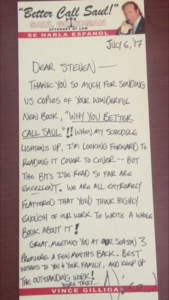 "Better Call Saul!"
SAUL GOODMAN
ATTORNEY AT LAW
SE HABLA ESPAÑOL
JULY 6, '17
DEAR STEVEN—
THANK YOU SO MUCH FOR SENDING
US COPIES OF YOUR WONDERFUL
NEW BOOK, "WHY YOU BETTER
CALL SAUL"!! WHEN MY SCHEDULE
LIGHTENS UP, I'M LOOKING FORWARD TO
READING IT COVER TO COVER -- BUT
THE BITS I'VE READ SO FAR ARE
EXCELLENT. WE ARE ALL EXTREMELY
FLATTERED THAT YOU'D THINK HIGHLY
ENOUGH OF OUR WORK TO WRITE A WHOLE
BOOK ABOUT IT!
GREAT MEETING YOU AT OUR SEASON 3
PREMIERE A FEW MONTHS BACK. BEST
WISHES TO YOU & YOUR FAMILY, AND KEEP UP
THE OUTSTANDING WORK!
YOURS TRULY,
VINCE GILLIGAN